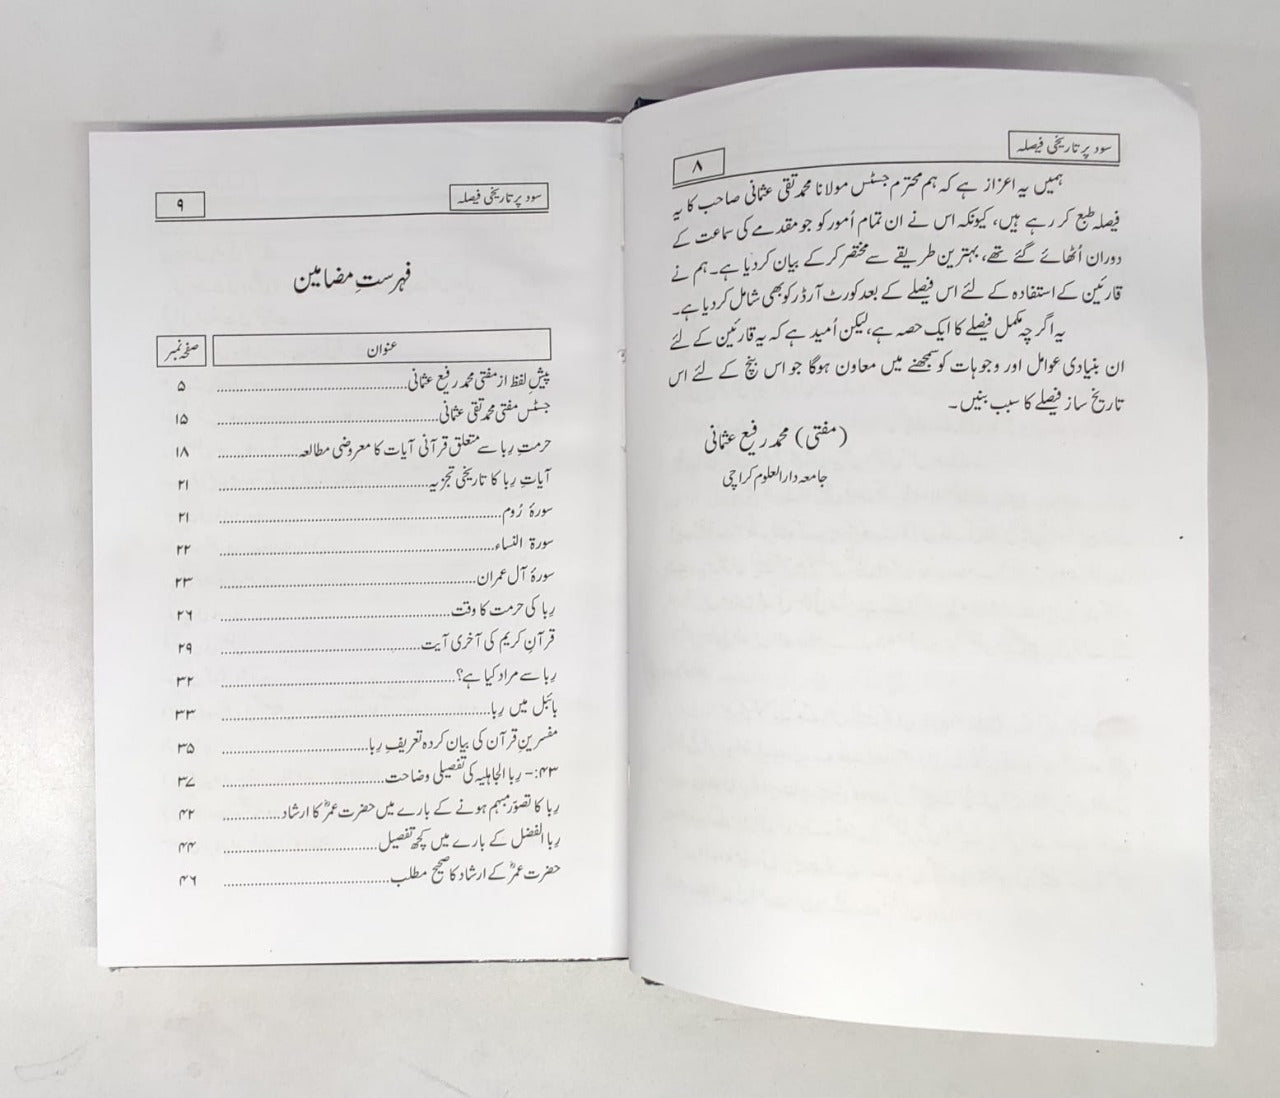 سود پر تاریخی فیصلہ
۸
ہمیں یہ اعزاز ہے کہ ہم محترم جسٹس مولانا محمد تقی عثمانی صاحب کا یہ
فیصلہ طبع کر رہے ہیں، کیونکہ اس نے ان تمام اُمور کو جو مقدمے کی سماعت کے
دوران اُٹھائے گئے تھے، بہترین طریقے سے مختصر کرکے بیان کردیا ہے۔ ہم نے
قارئین کے استفادہ کے لئے اس فیصلے کے بعد کورٹ آرڈر کو بھی شامل کردیا ہے۔
یہ اگرچہ مکمل فیصلے کا ایک حصہ ہے، لیکن اُمید ہے کہ یہ قارئین کے لئے
ان بنیادی عوامل اور وجوہات کو سمجھنے میں معاون ہوگا جو اس بنچ کے لئے اس
تاریخ ساز فیصلے کا سبب بنیں۔
(مفتی) محمد رفیع عثمانی
جامعہ دارالعلوم کراچی
سود پر تاریخی فیصلہ
۹
فہرستِ مضامین
عنوان صفحہ نمبر
پیش لفظ از مفتی محمد رفیع عثمانی ۵
جسٹس مفتی محمد تقی عثمانی ۱۵
حرمتِ رِبا سے متعلق قرآنی آیات کا معروضی مطالعہ ۱۸
آیاتِ رِبا کا تاریخی تجزیہ ۲۱
سورۂ رُوم ۲۱
سورۃ النساء ۲۲
سورۂ آل عمران ۲۳
رِبا کی حرمت کا وقت ۲۶
قرآنِ کریم کی آخری آیت ۲۹
رِبا سے مراد کیا ہے؟ ۳۲
بائبل میں رِبا ۳۳
مفسرینِ قرآن کی بیان کردہ تعریفِ رِبا ۳۵
۴۳:- رِبا الجاہلیہ کی تفصیلی وضاحت ۳۷
رِبا کا تصوّر مبہم ہونے کے بارے میں حضرت عمرؓ کا ارشاد ۴۲
رِبا الفضل کے بارے میں کچھ تفصیل ۴۴
حضرت عمرؓ کے ارشاد کا صحیح مطلب ۴۶